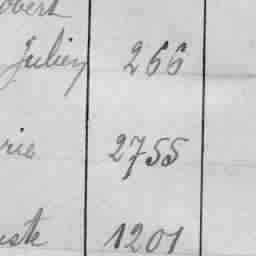 obert
Julien 266
rie 2755
uste 1201